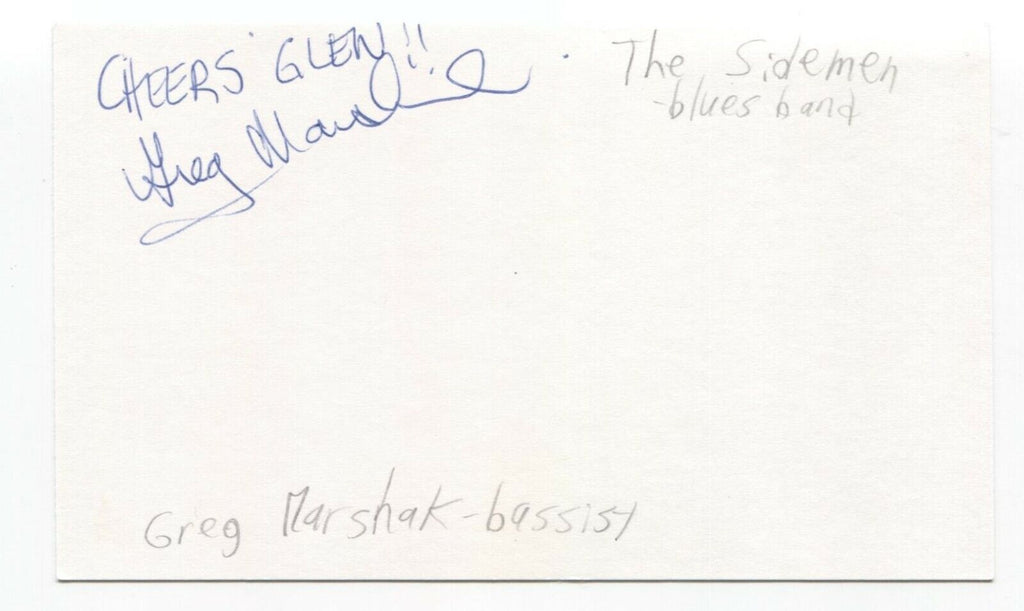 CHEERS GLEN!!
Greg Mars
The Sidemen
-blues band
Greg Marshak-bassist